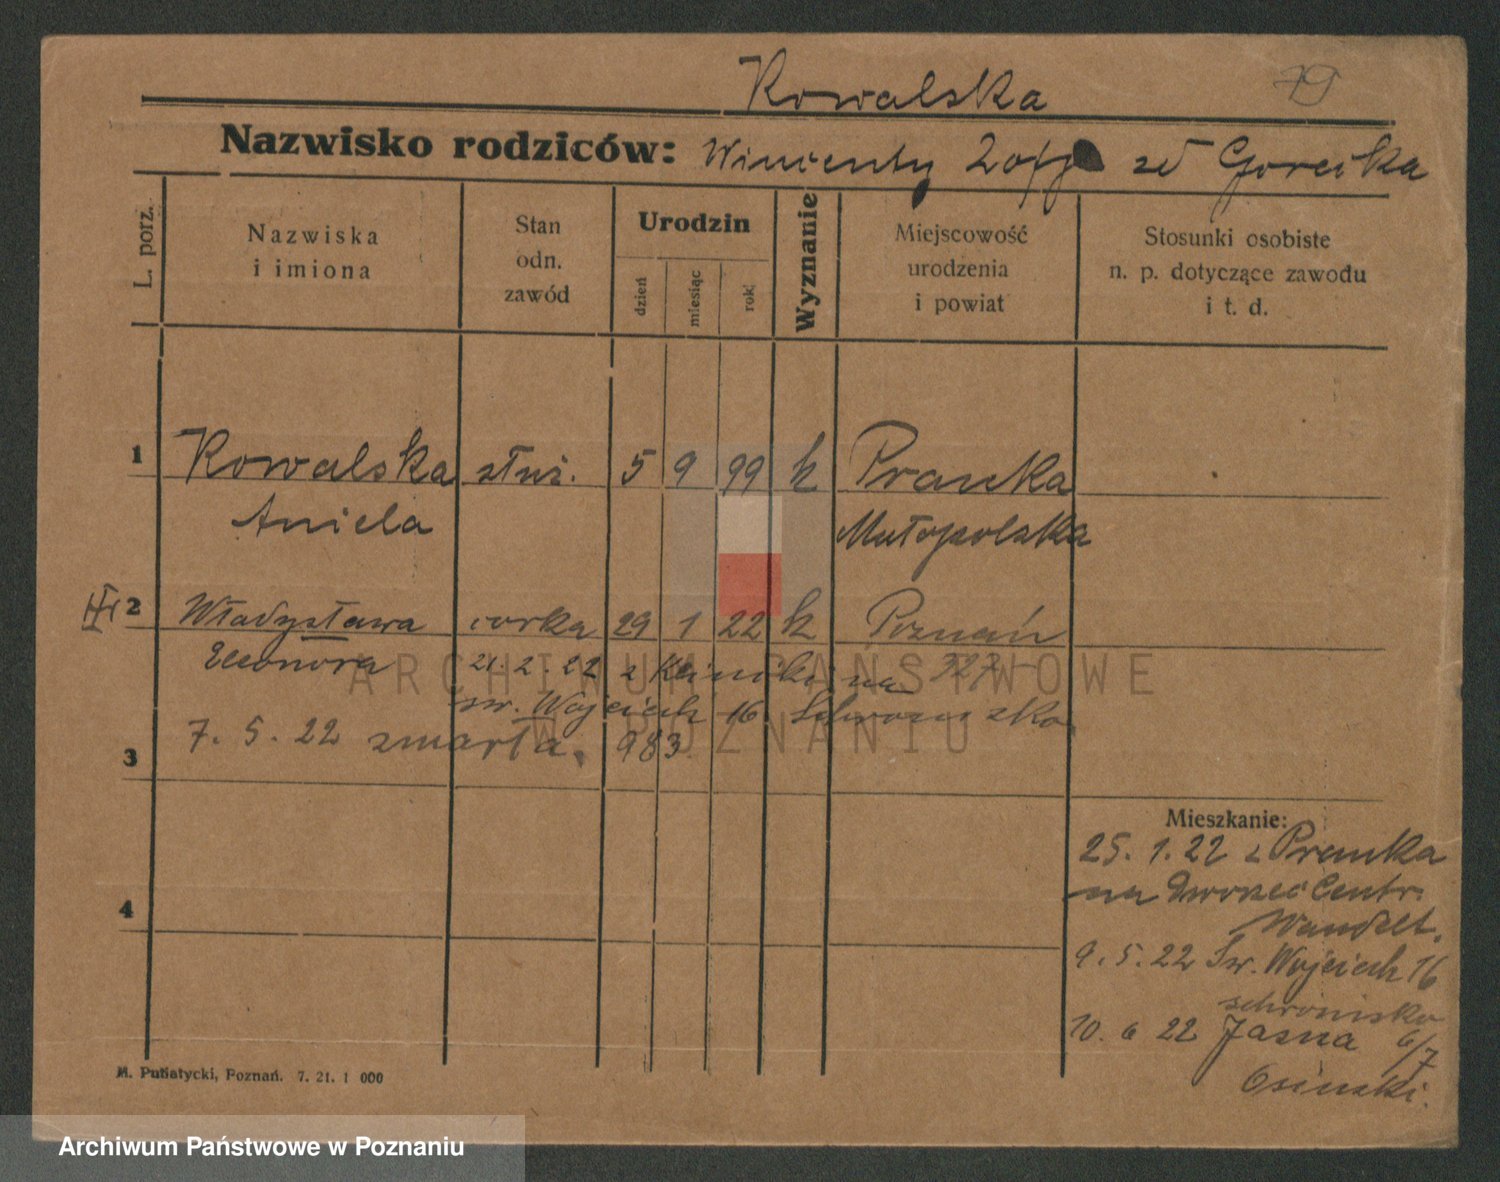 Kowalska 79
Nazwisko rodziców: Wincenty Zofja zd Gorecka
L. porz.
Nazwiska
i imiona
Stan
odn.
zawód
Urodzin
dzień
miesiąc
rok
Wyznanie
Miejscowość
urodzenia
i powiat
Stosunki osobiste
n. p. dotyczące zawodu
i t. d.
1 Kowalska służ. 5 9 99 k Pranka
Aniela Małopolska
2 Władysława córka 29 1 22 k Poznań
Eleonora 21. 2. 22 z Kliniki na 327
św. Wojciech 16 Schronisko
7. 5. 22 zmarła. 983
3
4
Mieszkanie:
25. 1. 22 z Pranka
na Dworzec Centr.
9. 5. 22 Św. Wojciech 16
schronisko
10. 6 22 Jasna 6/7
Osinski.
M. Putiatycki, Poznań. 7. 21. 1 000
ARCHIWUM PAŃSTWOWE
W POZNANIU
Archiwum Państwowe w Poznaniu